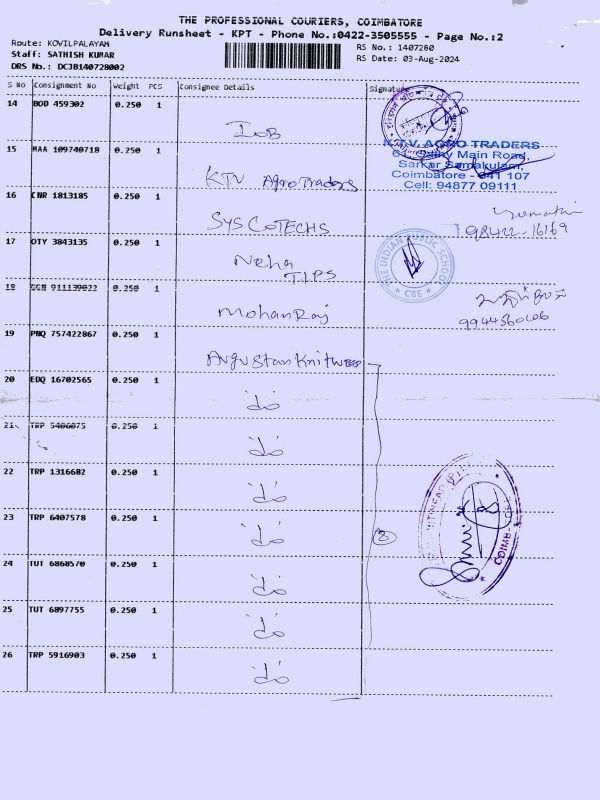 THE PROFESSIONAL COURIERS, COIMBATORE
Delivery Runsheet - KPT - Phone No.:0422-3505555 - Page No.:2
Route: KOVILPALAYAM
RS No.: 1407280
Staff: SATHISH KUMAR
RS Date: 03-Aug-2024
DRS No.: DCJB140728002
S No Consignment No Weight PCS Consignee Details Signature
14 BOD 459302 0.250 1 IOB
15 MAA 109740718 0.250 1 KTV Agro Traders
KTV AGRO TRADERS
Main Road,
Sarkar Samakulam,
Coimbatore - 641 107
Cell: 94877 09111
16 CNR 1813185 0.250 1 SYS COTECHS
98422-16169
17 OTY 3843135 0.250 1 Neha
T.I.P.S
THE INDIAN PUBLIC SCHOOL
* CBE *
18 GGN 911139022 0.250 1 Mohan Raj
19 PNQ 757422867 0.250 1
20 EDQ 16702565 0.250 1 do
21 TRP 5406075 0.250 1 do
22 TRP 1316682 0.250 1 do
23 TRP 6407578 0.250 1 do
8
24 TUT 6868570 0.250 1 do
25 TUT 6897755 0.250 1 do
26 TRP 5916903 0.250 1 do